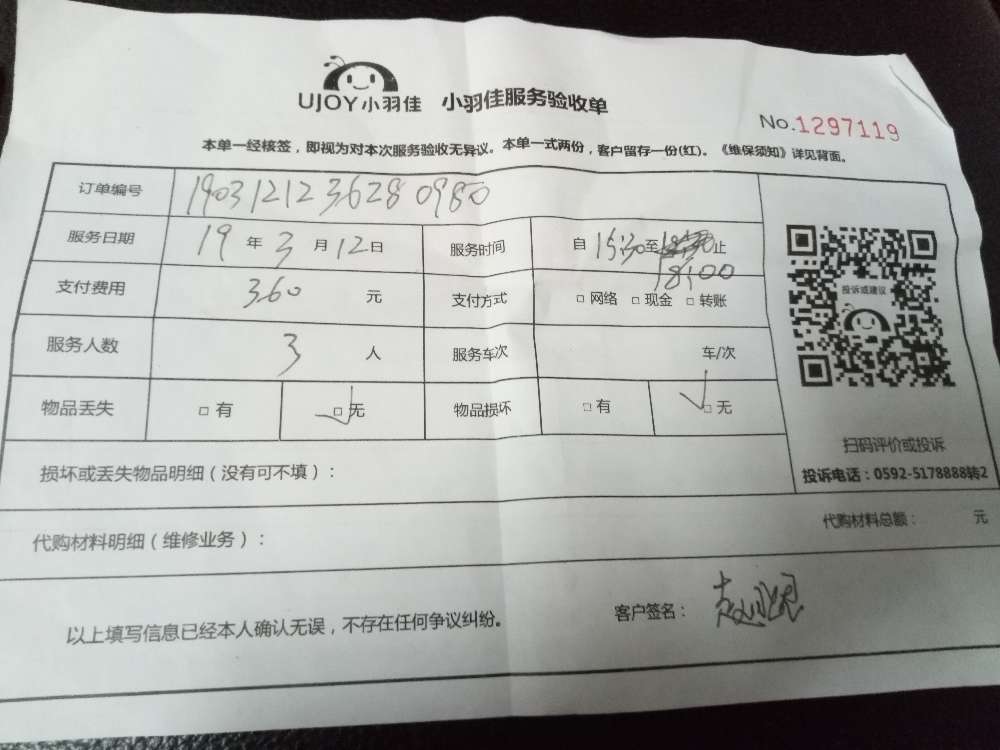 UJOY小羽佳 小羽佳服务验收单
No.1297119
本单一经核签，即视为对本次服务验收无异议。本单一式两份，客户留存一份(红)。《维保须知》详见背面。
订单编号 1903121236280980
服务日期 19 年 3 月 12 日 服务时间 自 15:30 至 止
18:00
支付费用 360 元 支付方式 □ 网络 □ 现金 □ 转账
服务人数 3 人 服务车次 车/次
物品丢失 □ 有 □ 无 物品损坏 □ 有 □ 无
投诉或建议
扫码评价或投诉
投诉电话：0592-5178888转2
损坏或丢失物品明细（没有可不填）：
代购材料明细（维修业务）： 代购材料总额： 元
以上填写信息已经本人确认无误，不存在任何争议纠纷。 客户签名：